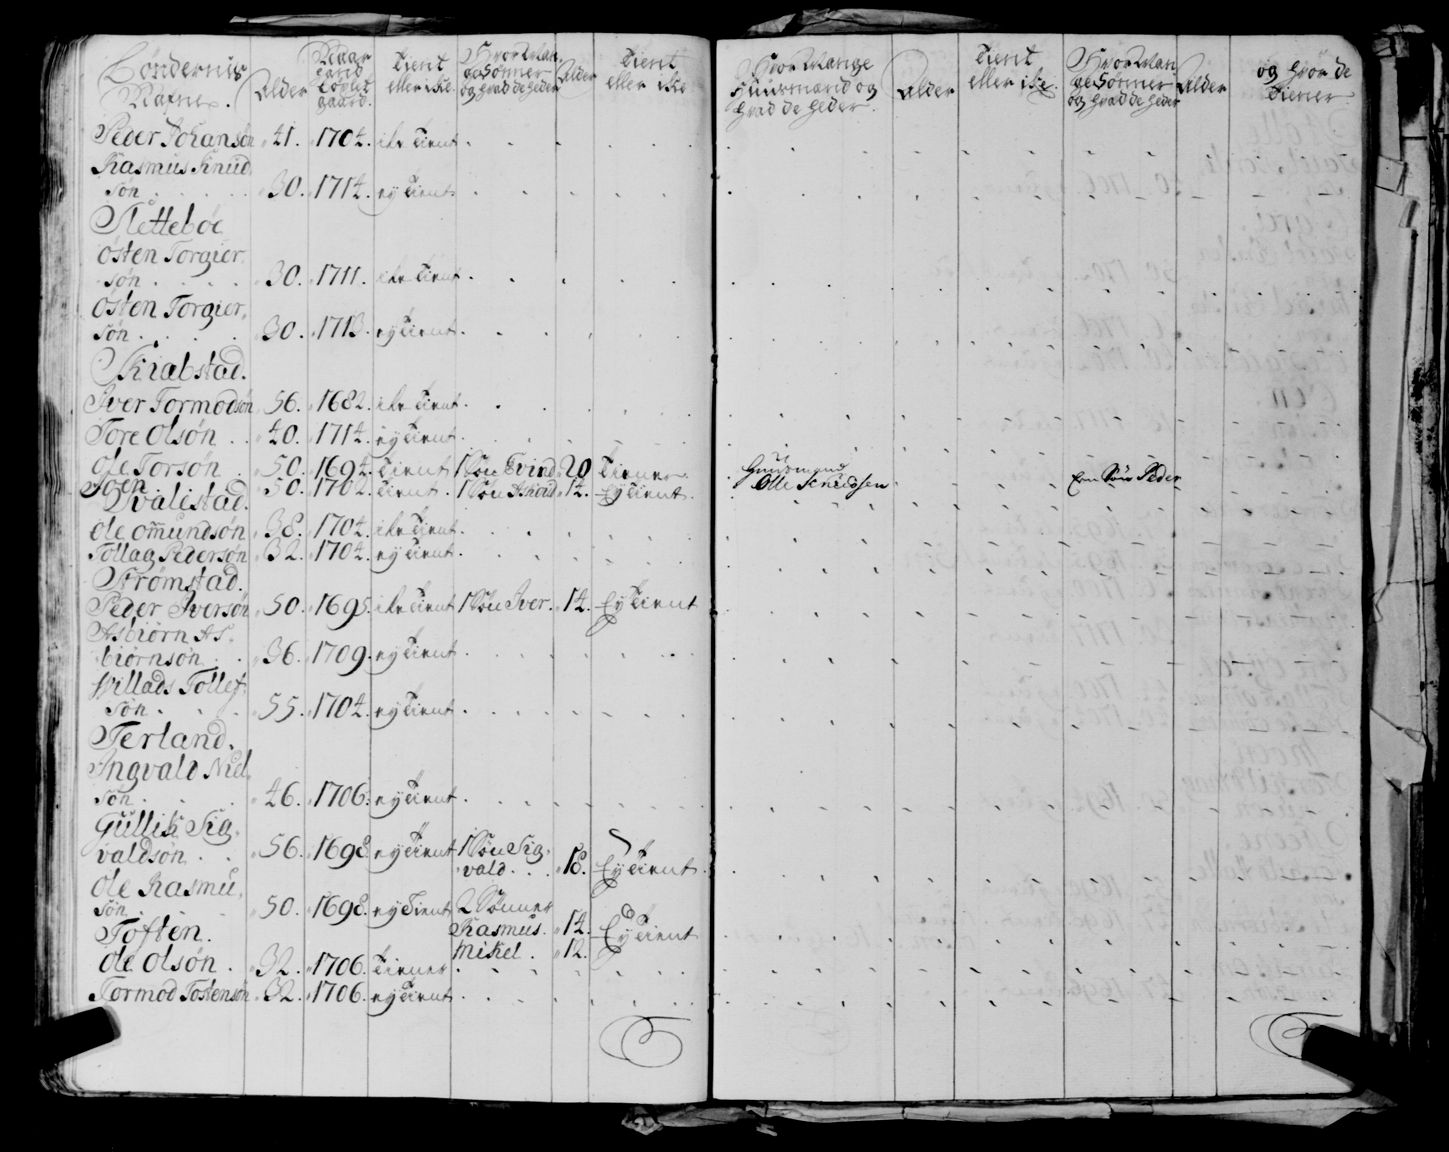 Böndernis Nafne. Alder Naar hand bøxlet gaard. Tient eller iche Hvor Man ge Sønner og hvad de heder Alder Tient eller iche
Hvor Mange Huusmænd og hvad de heder Alder Tient eller iche Hvor Man ge Sønner og hvad de heder Alder og hvor de Tiener
Peder Johansøn 41. 1704. iche tient
Rasmus Knud
søn 30. 1714. ey tient
Slettebøe
Østen Torgier
søn 30. 1711. iche tient
Østen Torgier
søn 30. 1713. ey tient
Skiabstad.
Iver Tormodsøn 56. 1682. iche tient
Tore Olsøn 40. 1714. ey tient
Ole Torsøn 50. 1694. tient 1 Søn Evind 20 tiener
Huusmand Olle
Een Søn Peder
Sven 50. 1702. tient 1 Søn 14. Ey tient
Qvalistad.
Ole Omundsøn 38. 1704. iche tient
Tollag Pedersøn 32. 1704. ey tient
Strømstad.
Peder Iversøn 50. 1695. iche tient 1 Søn Iver. 14. Ey tient
Asbiørn As-
biørnsøn 36. 1709. ey tient
Willads Tollef
søn 55. 1704. ey tient
Terland.
Ingvald Niel
søn 46. 1706. ey tient
Gullik Sig
valdsøn 56. 1698. ey tient 1 Søn Sig
vald 18. Ey tient
Ole Rasmu
søn 50. 1698. ey tient 2 Sønner
Toften.
Rasmus. 14. Ey tient
Mikel. 12.
Ole Olsøn 32. 1706. tiener
Tormod Tostensøn 32. 1706. ey tient